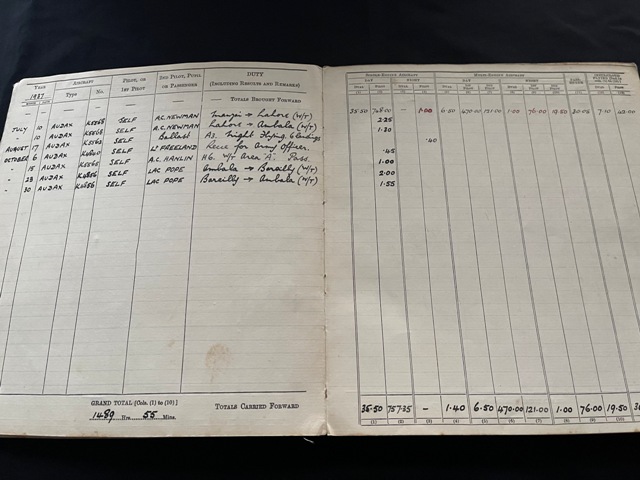 YEAR AIRCRAFT PILOT, OR 2ND PILOT, PUPIL DUTY SINGLE-ENGINE AIRCRAFT MULTI-ENGINE AIRCRAFT
1937 Type No. 1ST PILOT OR PASSENGER (INCLUDING RESULTS AND REMARKS) DAY NIGHT DAY NIGHT
— — — — — — TOTALS BROUGHT FORWARD 35.50 748.00 — 1.00 6.50 470.00 121.00 1.00 76.00 19.50 7.10
JULY 10 AUDAX K5568 SELF A.C. NEWMAN → Lahore (W/T) 2.25
10 AUDAX K5568 SELF A.C. NEWMAN Lahore → Ambala (W/T) 1.30
AUGUST 17 AUDAX SELF Ballast Night Flying. 6 landings .40
OCTOBER 6 AUDAX SELF LT FREELAND Recce for Army Officer. .45
15 AUDAX SELF A.C. HANLIN A6. W/T Area 'A'. Pass. 1.00
28 AUDAX SELF LAC POPE Ambala → Bareilly (W/T) 2.00
30 AUDAX SELF LAC POPE Bareilly → Ambala (W/T) 1.55
GRAND TOTAL [Cols. (1) to (10)]
1489 Hrs. 55 Mins. TOTALS CARRIED FORWARD 35.50 757.35 — 1.40 6.50 470.00 121.00 1.00 76.00 19.50
(1) (2) (3) (4) (5) (6) (7) (8) (9) (10)